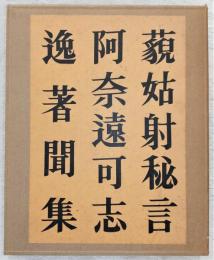 藐姑射秘言
阿奈遠可志
逸著聞集